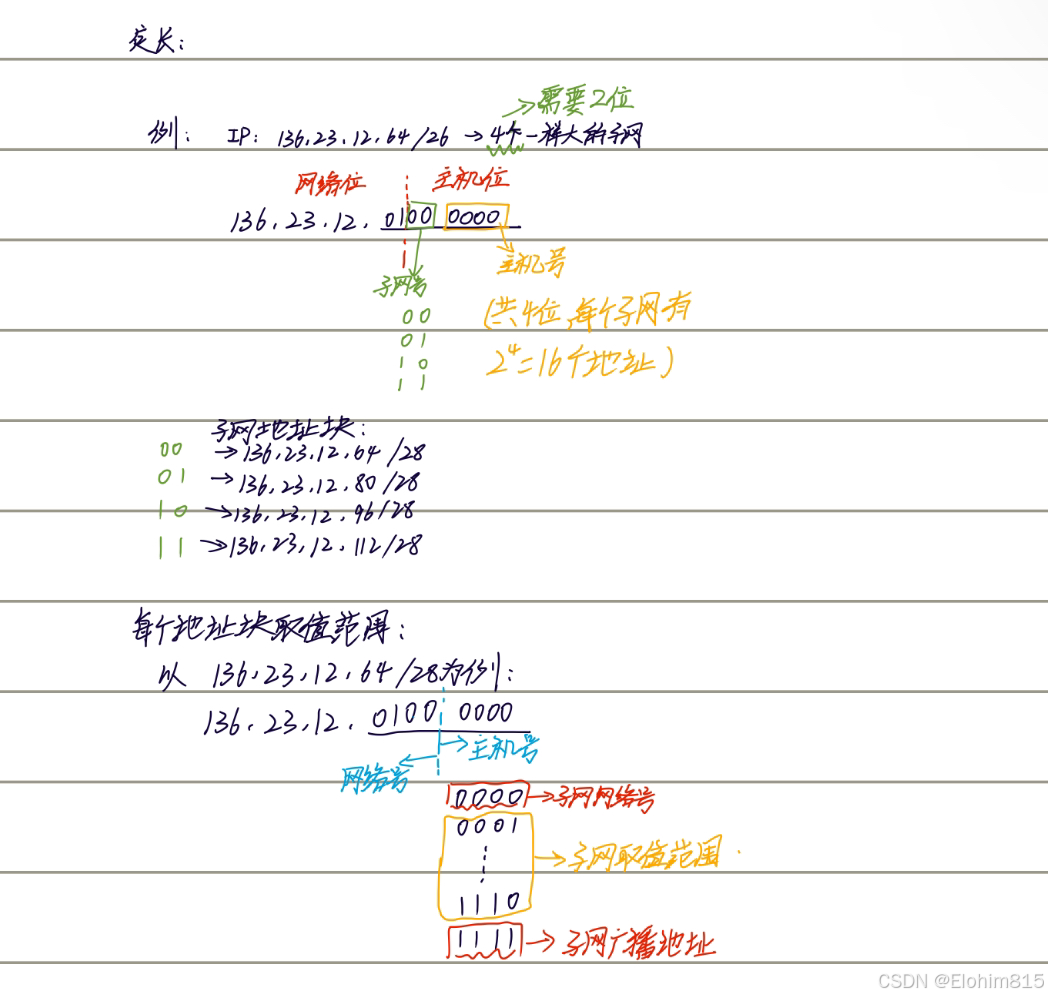 定长：
需要2位
例： IP: 136.23.12.64/26 → 4个一样大的子网
网络位 主机位
136.23.12.0100 0000
子网号 主机号
00
01
10
11
(共4位,每个子网有
2⁴=16个地址)
子网地址块：
00 →136.23.12.64/28
01 →136.23.12.80/28
10 →136.23.12.96/28
11 →136.23.12.112/28
每个地址块取值范围：
以 136.23.12.64/28为例：
136.23.12.0100 0000
→主机号
网络号
0000→子网网络号
0001
→子网取值范围
1110
1111→子网广播地址
CSDN @Elohim815